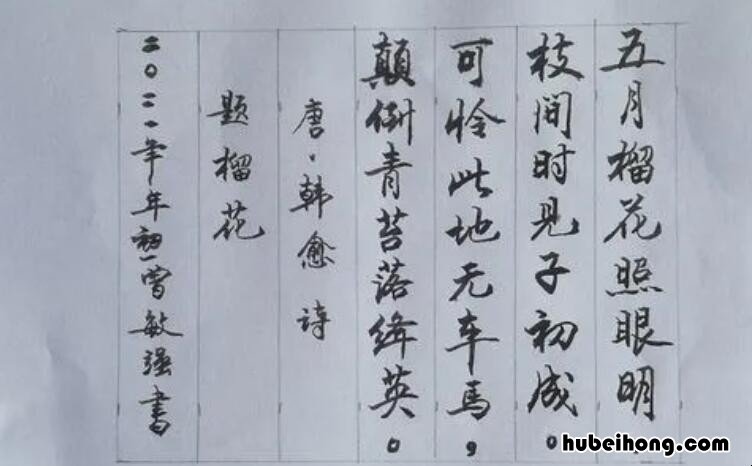 五月榴花照眼明，
枝间时见子初成。
可怜此地无车马，
颠倒青苔落绛英。
唐·韩愈诗
题榴花
二〇二一年年初一曾敏强书
hubeihong.com